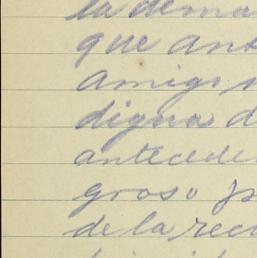 la dema
que ant
amigo
dignos d
antecede
groso p
de la rec